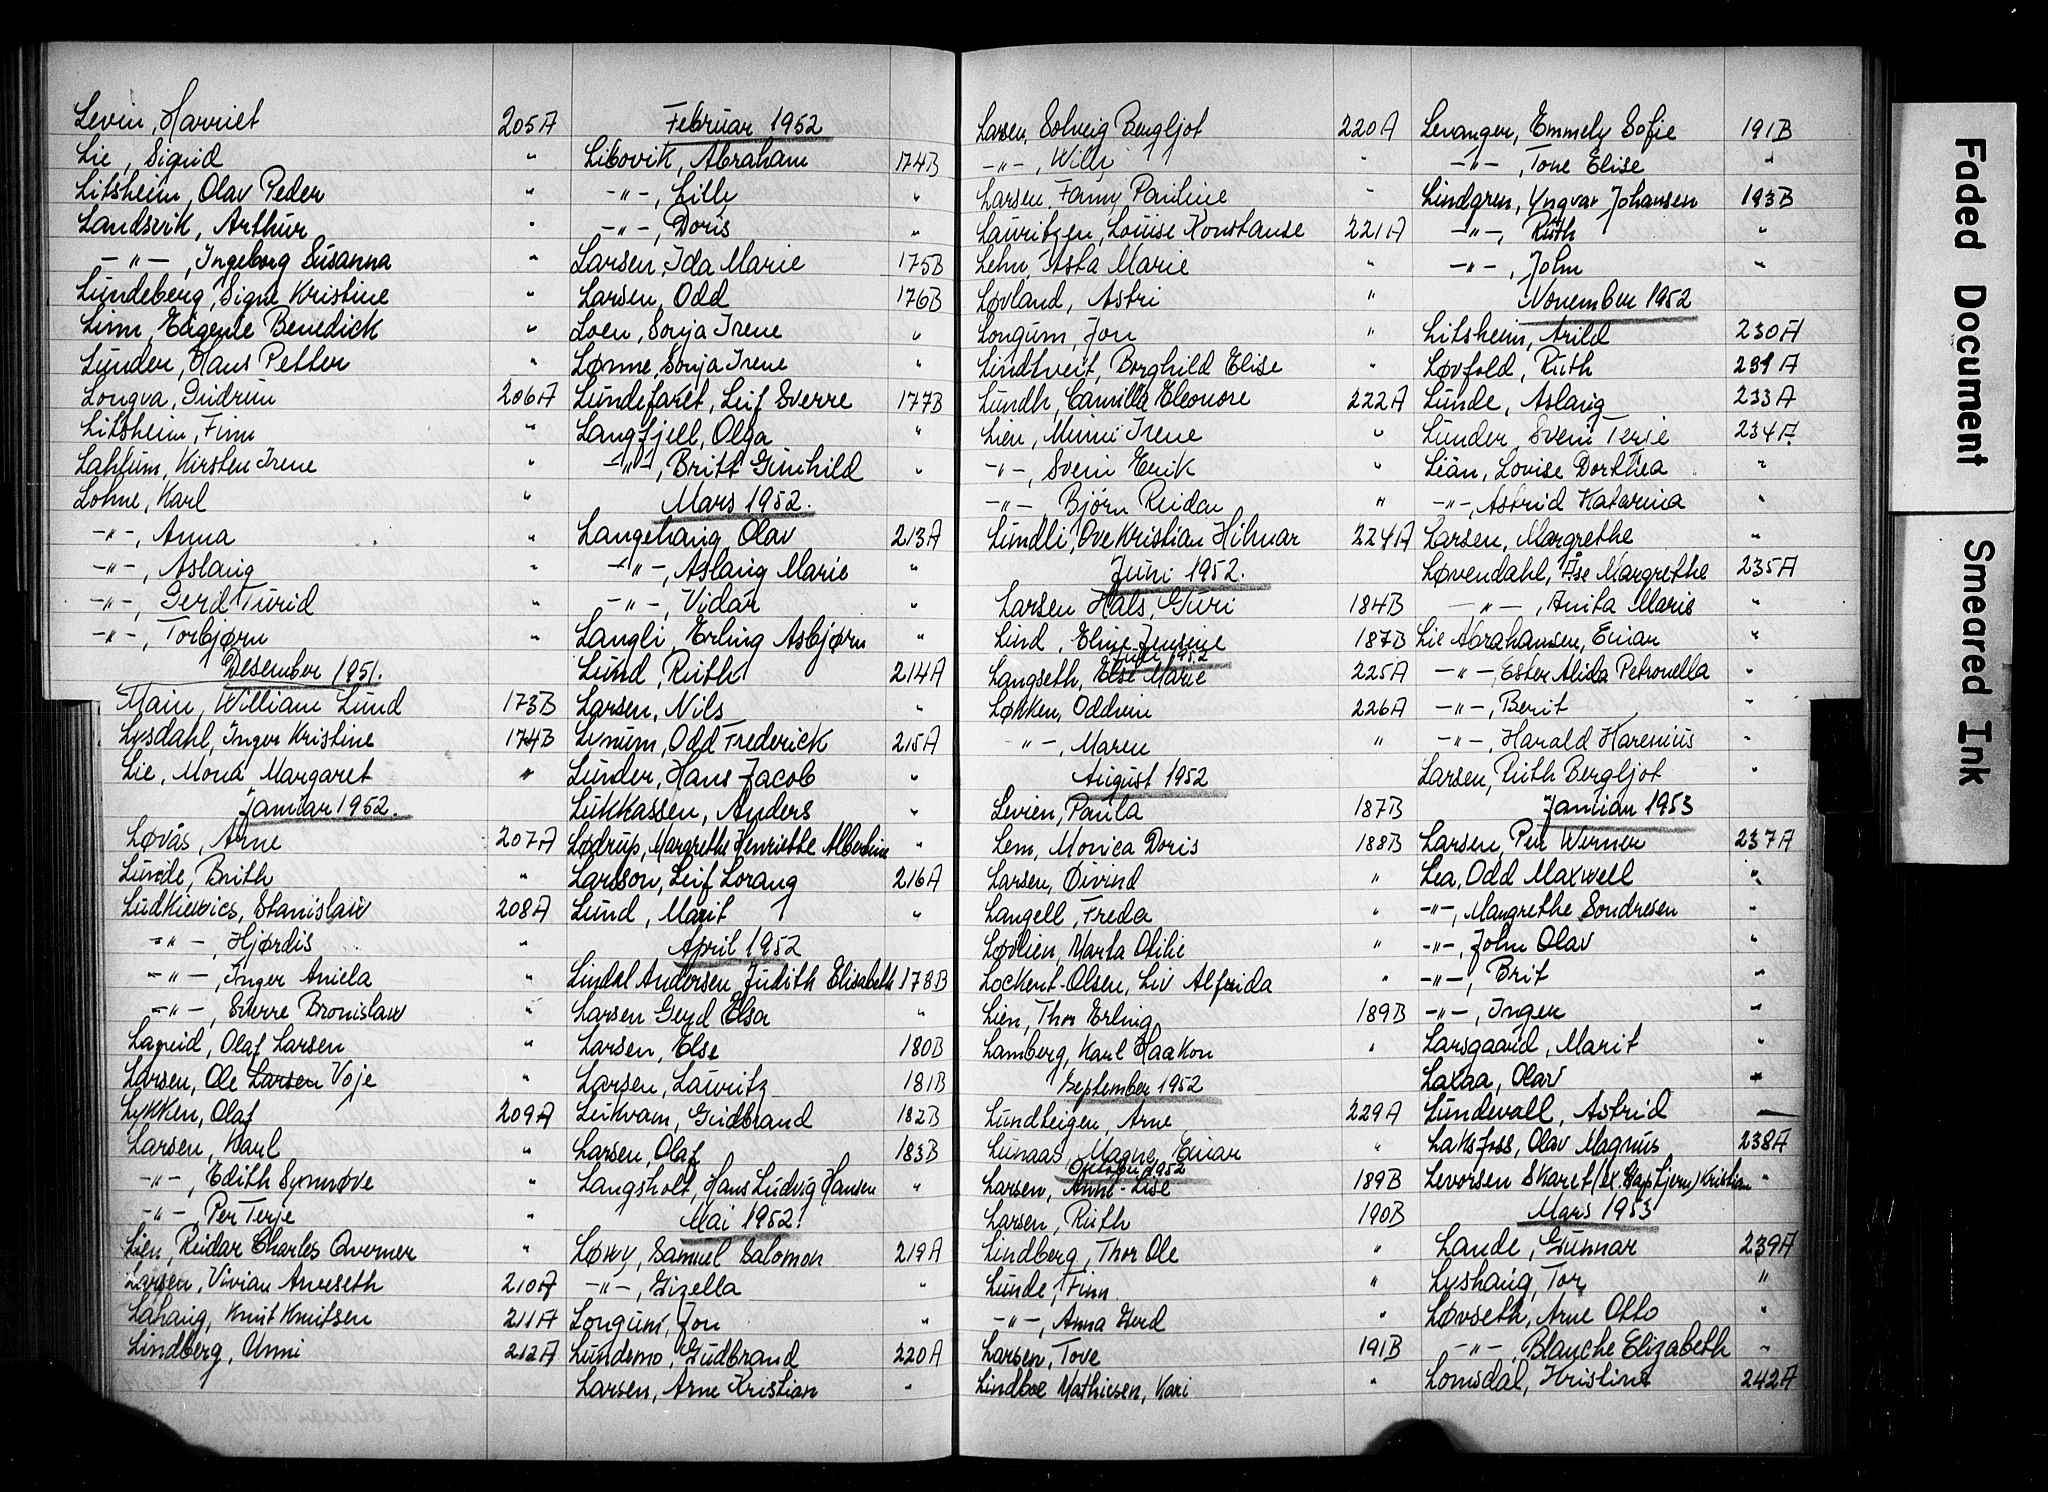 Levin, Harriet 205A
Lie, Sigrid "
Litsheim, Olav Peder "
Landsvik, Arthur "
-"-, Ingeborg Susanna "
Lundeberg, Signe Kristine "
Linn, Eugenie Benedick "
Lunder, Hans Petter "
Longva, Gudrun 206A
Litsheim, Finn "
Lahlum, Kirsten Irene "
Lohne, Karl "
-"-, Anna "
-"-, Aslaug "
-"-, Gerd Turid "
-"-, Torbjørn "
Desember 1951.
Main, William Lund 173B
Lysdahl, Inger Kristine 174B
Lie, Mona Margaret "
Januar 1952.
Løvås, Arne 207A
Lunde, Brith "
Ludkiewics, Stanislaw 208A
-"-, Hjørdis "
-"-, Inger Aniela "
-"-, Sverre Bronislaw "
Lagreid, Olaf Larsen "
Larsen, Ole Larsen Voje "
Lykken, Olaf 209A
Larsen, Karl "
-"-, Edith Synnøve "
-"-, Per Terje "
Lien, Reidar Charles Qverner "
Larsen, Vivian Anveseth 210A
Lahaug, Knut Knutsen 211A
Lindberg, Unni 212A
Februar 1952
Libovik, Abraham 174B
-"-, Lilly "
-"-, Doris "
Larsen, Ida Marie 175B
Larsen, Odd 176B
Loen, Sonja Irene "
Lønne, Sonja Irene "
Lundefaret, Leif Sverre 177B
Langfjell, Olga "
-"-, Britt Gunhild "
Mars 1952.
Langehaug Olav 213A
-"-, Aslaug Marie "
-"-, Vidar "
Langli, Erling Asbjørn "
Lund, Ruth 214A
Larsen, Nils "
Lynum, Odd Frederick 215A
Lunder, Hans Jacob "
Lukkassen, Anders "
Lødrup, Margrethe Henriette Albertine "
Larsson, Leif Lorang 216A
Lund, Marit "
April 1952
Lindal Andersen Judith Elisabeth 178B
Larsen Gerd Elsa "
Larsen, Else 180B
Larsen, Lauritz 181B
Leikvam, Gudbrand 182B
Larsen, Olaf 183B
Langsholt, Hans Ludvig Hansen "
Mai 1952.
Løvy, Samuel Salomon 219A
-"-, Gizella "
Longum, Jon "
Lundemo, Gudbrand 220A
Larsen, Arne Kristian "
Larsen, Solveig Bergljot 220A
-"-, Willy "
Larsen, Fanny Pauline "
Lauritzen, Louise Konstanse 221A
Lehn, Asta Marie "
Løvland, Astri "
Longum, Jon "
Lindtveit, Borghild Elise "
Lundh, Camilla Eleonore 222A
Lien, Munni Irene "
-"-, Svein Erik "
-"-, Bjørn Reidar "
Lundli, Ove Kristian Hilmar 224A
Juni 1952.
Larsen Hals, Guri 184B
Lind, Eline Jensine 187B
Juli 1952
Langseth, Else Marie 225A
Løkken, Oddvin 226A
"-, Maren "
August 1952
Levien, Paula 187B
Lem, Monica Doris 188B
Larsen, Øivind "
Langell, Freda "
Løvlien, Marta Otilie "
Lockert-Olsen, Liv Alfrida "
Lien, Thor Erling 189B
Lamberg, Karl Haakon "
September 1952
Lundteigen, Arne 229A
Lunaas, Magne Einar "
Oktober 1952
Larsen, Anne-Lise 189B
Larsen, Ruth 190B
Lindberg, Thor Ole "
Lunde, Finn "
-"-, Anna Gerd "
Larsen, Tove 191B
Lindboe Mathiesen, Kari "
Levanger, Emmely Sofie 191B
-"-, Tone Elise "
Lindgren, Yngvar Johansen 193B
-"-, Ruth "
-"-, John "
November 1952
Litsheim, Arild 230A
Løvfold, Ruth 231A
Lunde, Aslaug 233A
Lunder, Svein Terje 234A
Leian, Lovise Dorthea "
-"-, Astrid Katarina "
Larsen, Margrethe "
Løvendahl, Åse Margrethe 235A
-"-, Anita Maris "
Lie Abrahamsen, Einar "
-"-, Ester Alida Petronella "
-"-, Berit "
-"-, Harald Harenius "
Larsen, Ruth Bergljot "
Januar 1953
Larsen, Per Werner 237A
Lea, Odd Maxwell "
-"-, Margrethe Sondresen "
-"-, John Olav "
-"-, Brit "
-"-, Inger "
Larsgaard, Marit "
Laxaa, Olav "
Lundevall, Astrid
Laksfoss, Olav Magnus 238A
Levorsen Skaret (ex Gaptjern) Kristian "
Mars 1953
Lande, Gunnar 239A
Lyshaug, Tor "
Løvseth, Arne Otto "
-"-, Blanche Elizabeth "
Lomsdal, Kristine 242A
Faded Document
Smeared Ink